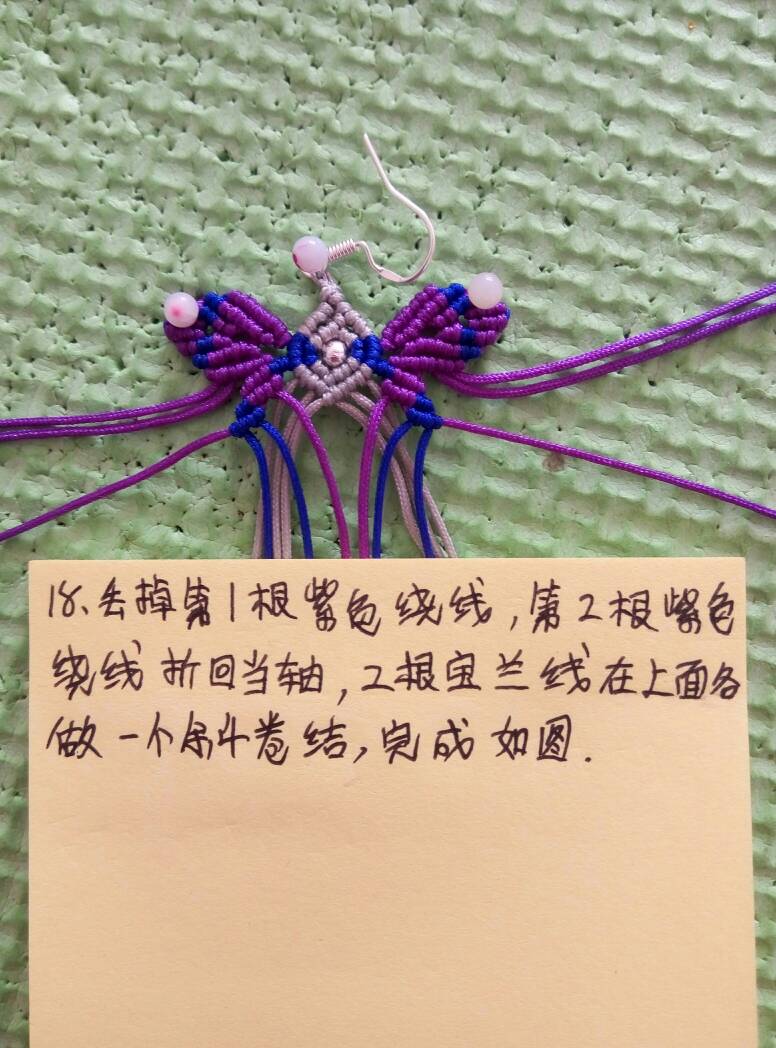 18、丢掉第1根紫色绕线,第2根紫色
绕线折回当轴,2根宝兰线在上面各
做一个斜卷结,完成如图.